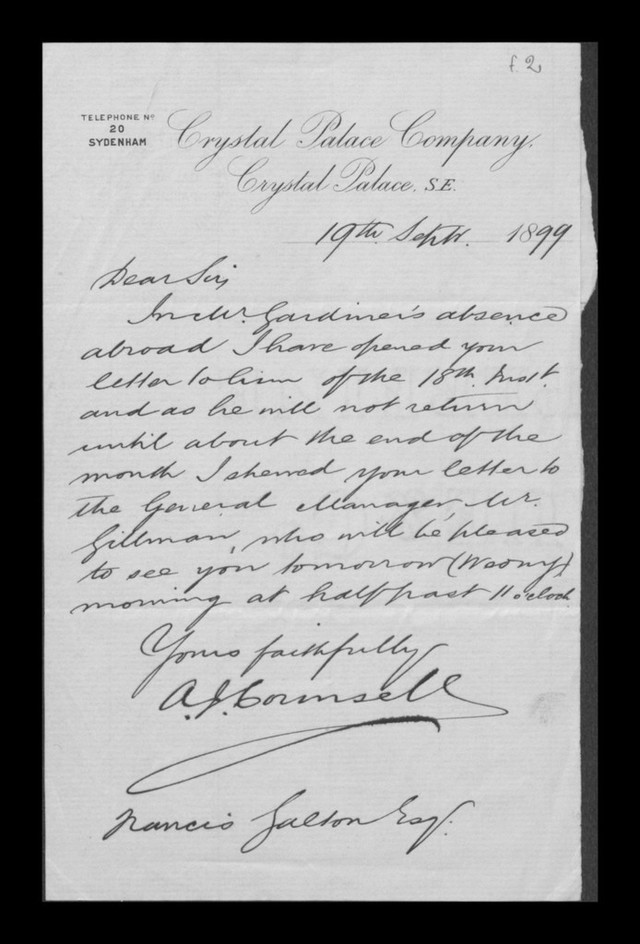 f. 2
TELEPHONE Nº
20
SYDENHAM
Crystal Palace Company.
Crystal Palace. S.E.
19th. Septr. 1899
Dear Sir,
In Mr. Gardiner's absence
abroad I have opened your
letter to him of the 18th. Inst.
and as he will not return
until about the end of the
month I shewed your letter to
the General Manager, Mr.
Gillman, who will be pleased
to see you tomorrow (Wedny)
morning at half past 11 o'clock.
Yours faithfully
A.J. Counsell
Francis Galton Esq.